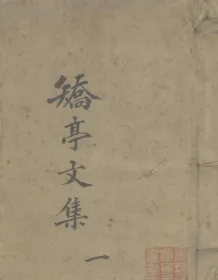 矯亭文集
一